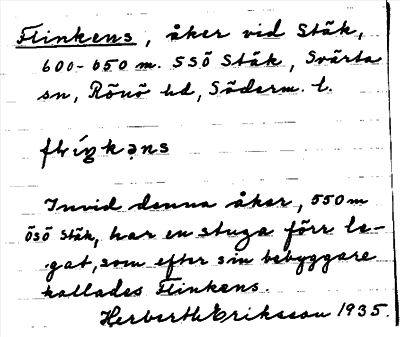 Flinkens, åker vid Stäk,
600-650 m. SSÖ Stäk, Svärta
sn, Rönö hd, Söderm. l.
flìŋkəns
Invid denna åker, 550 m
ÖSÖ Stäk, har en stuga förr le-
gat, som efter sin bebyggare
kallades Flinkens.
Herberth Eriksson 1935.